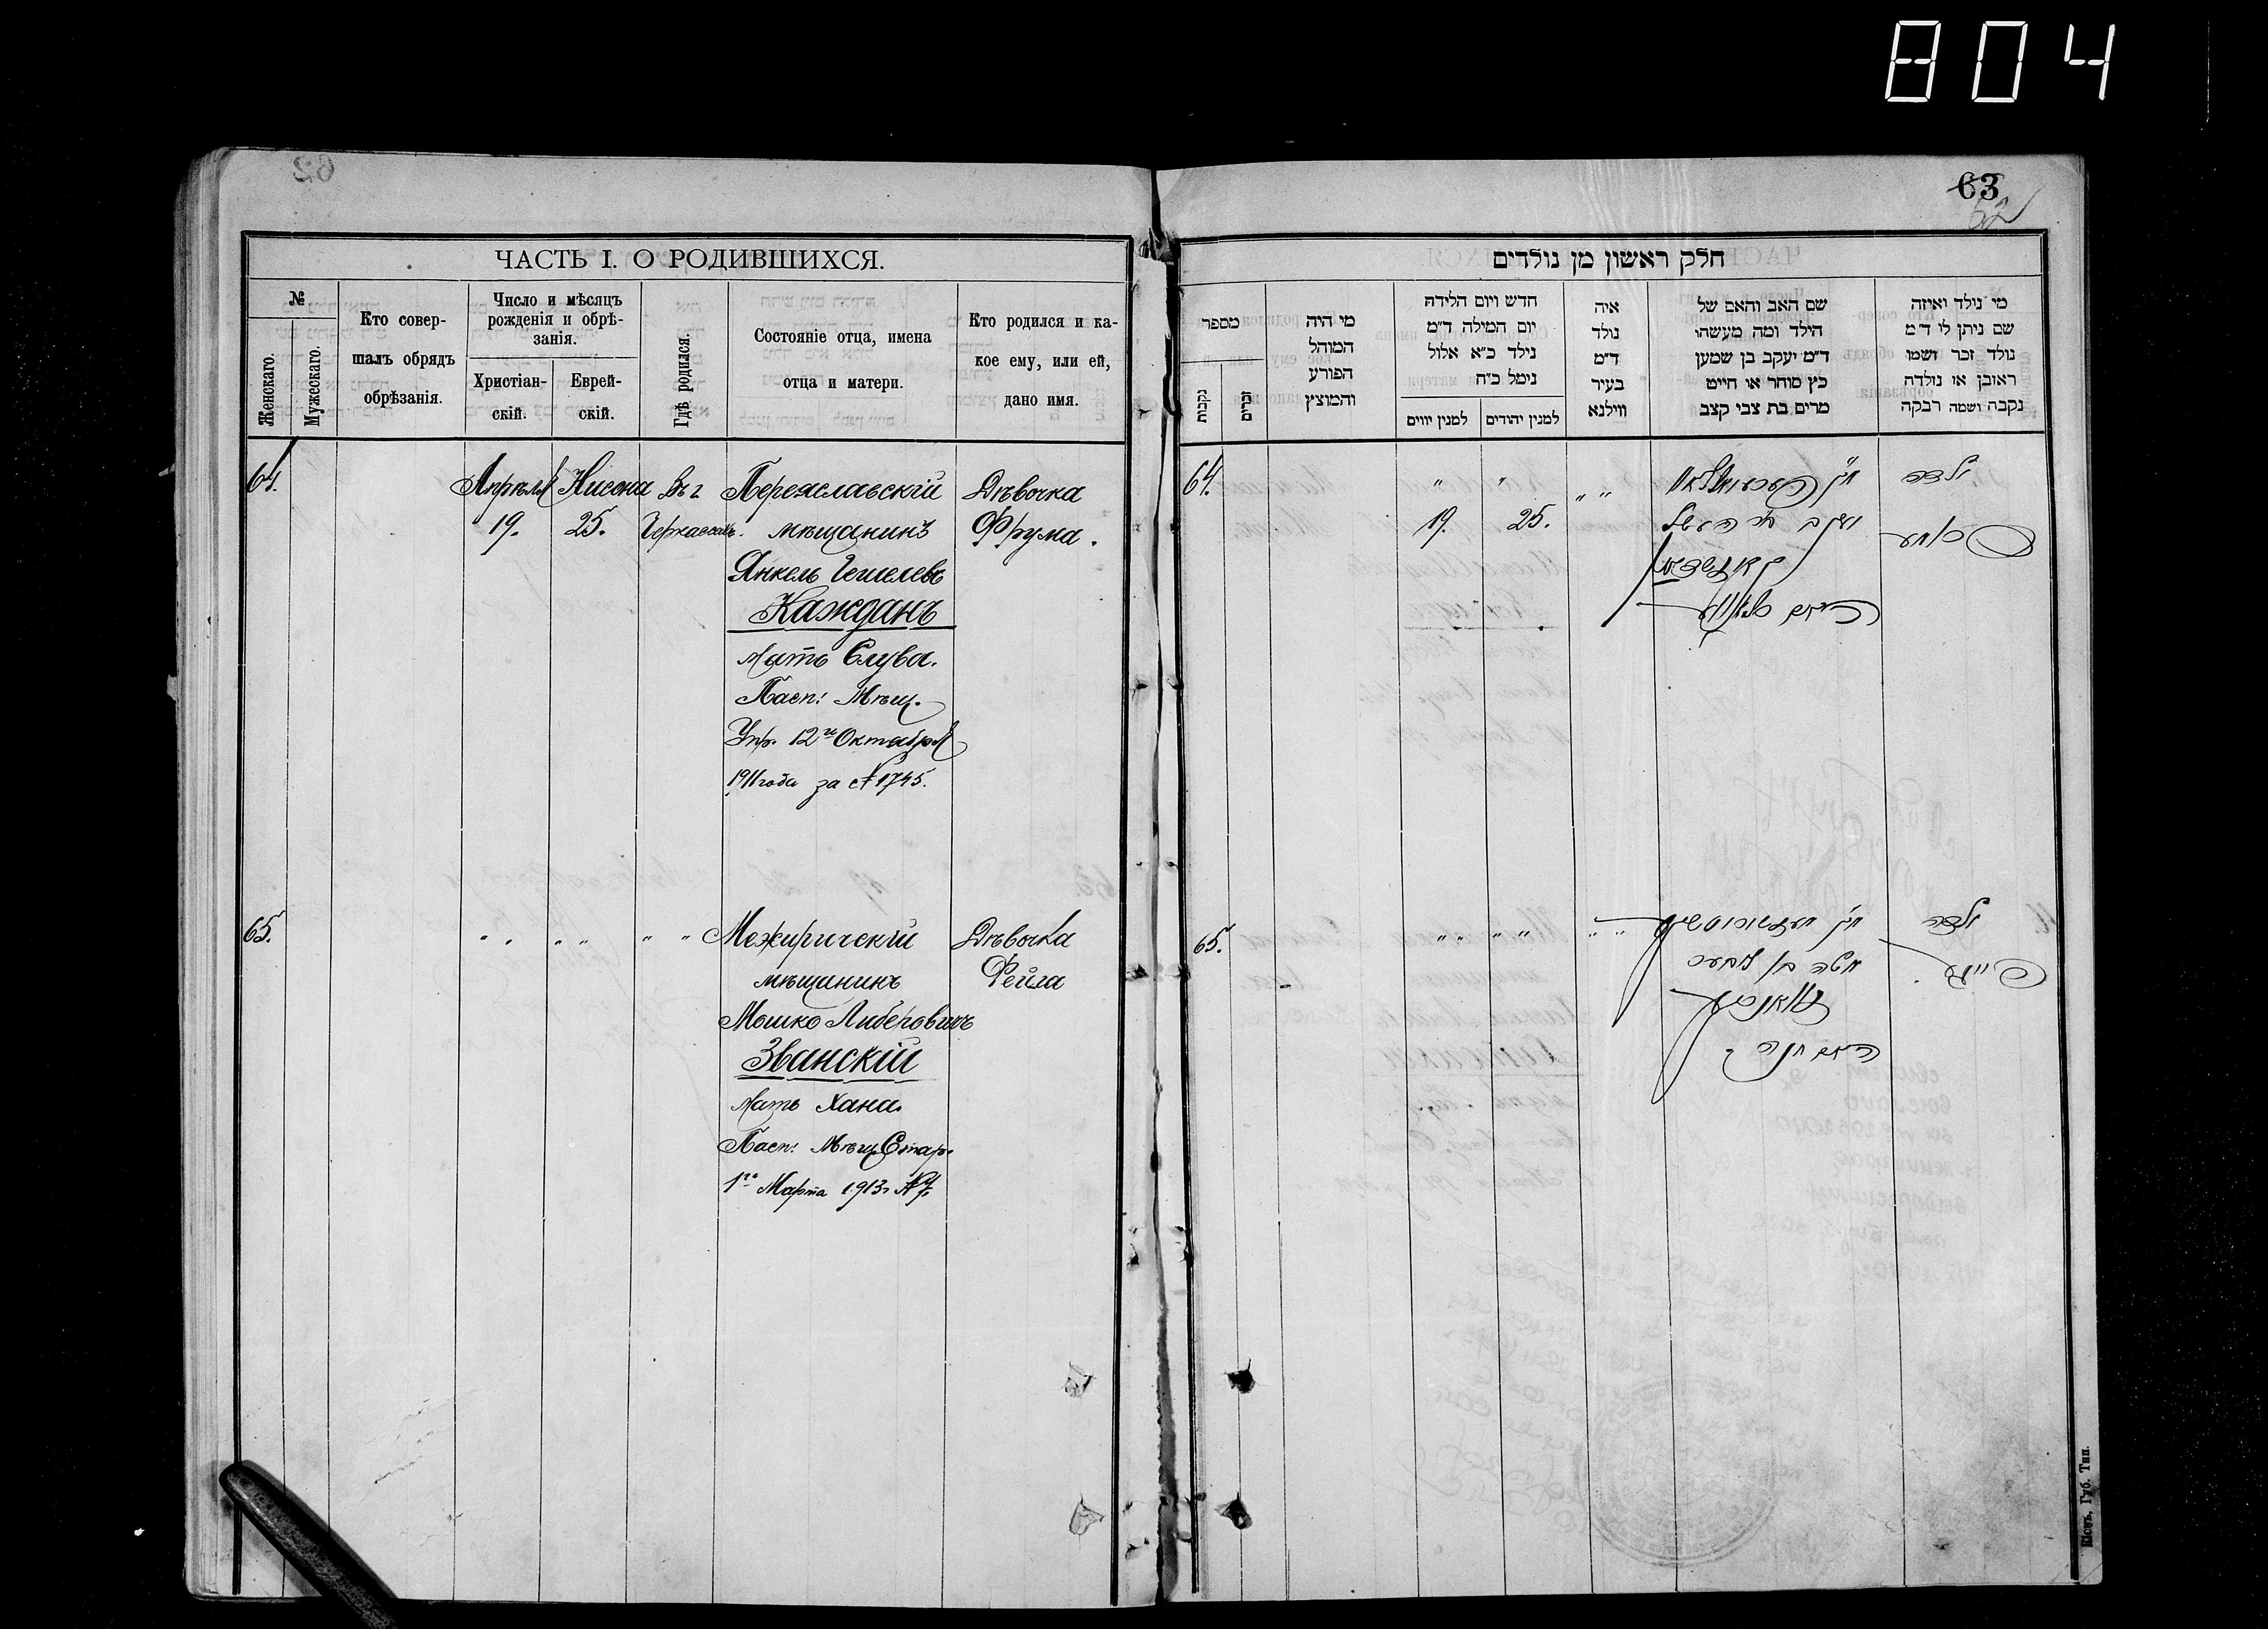 804
62
ЧАСТЬ I. О РОДИВШИХСЯ.
№
Женскаго.
Мужескаго.
Кто совер-
шалъ обрядъ
обрѣзанія.
Число и мѣсяцъ
рожденія и обрѣ-
занія.
Христіан-
скій.
Еврей-
скій.
Гдѣ родился.
Состояніе отца, имена
отца и матери.
Кто родился и ка-
кое ему, или ей,
дано имя.
64.
Апрѣля
19.
Нисона
25.
Въ г
Черкассахъ.
Переяславскій
мѣщанинъ
Янкель Гешелевъ
Каждань
Мать Слува.
Пасп: Мѣщ.
Упр. 12го Октября
1911 года за № 1745.
Дѣвочка
Фрума.
65.
" "
" "
" "
Межиричскій
мѣщанинъ
Мошко Либеровичъ
Званскій
Мать Хана.
Пасп: Мѣщ. Стар.
1го Марта 1913 г
Дѣвочка
Фейга
63
62
חלק ראשון מן נולדים
מספר
נקבות
זכרים
מי היה
המוהל
הפורע
והמוצץ
חדש ויום הלידה
יום המילה ד״מ
נילד כ״א אלול
נימל כ״ח
למנין יווים
למנין יהודים
איה
נולד
ד״מ
בעיר
ווילנא
שם האב והאם של
הילד ומה מעשהו
ד״מ יעקב בן שמען
כץ סוחר או חייט
מרים בת צבי קצב
מי נולד ואיזה
שם ניתן לי ד״מ
נולד זכר ושמו
ראובן או נולדה
נקבה ושמה רבקה
64.
"
19.
"
25.
" "
ילדה
65.
" "
" "
" "
משה בן
האם חנה
ילדה
Кіевъ, Губ. Тип.